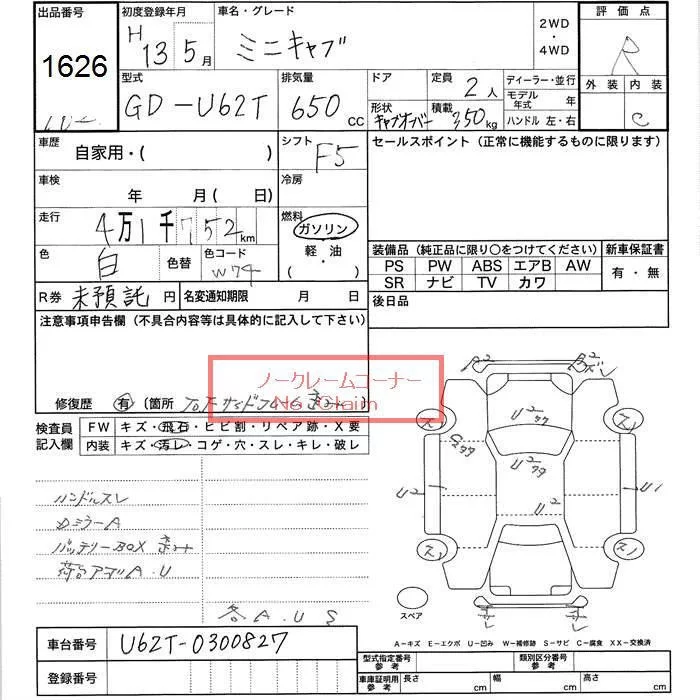 出品番号
1626
初度登録年月
H 13 5月
車名・グレード
ミニキャブ
2WD
・
4WD
評価点
R
外装 内装
C
型式
GD-U62T
排気量
650 cc
ドア
形状
キャブオーバー
定員
2人
積載
350kg
ディーラー・並行
モデル年式 年
ハンドル 左・右
車歴
自家用・( )
シフト
F5
車検
年 月( 日)
冷房
走行
4万1千752km
燃料
ガソリン
軽・油
・( )
色
白
色替
色コード
W74
R券 未預託 円
名変通知期限 月 日
セールスポイント(正常に機能するものに限ります)
装備品(純正品に限り○をつけてください)
PS PW ABS エアB AW
SR ナビ TV カワ
新車保証書
有・無
後日品
注意事項申告欄(不具合内容等は具体的に記入して下さい)
ノークレームコーナー
No Claim
修復歴 有 [箇所
検査員
記入欄
FW キズ・飛石・ヒビ割・リペア跡・X要
内装 キズ・汚レ・コゲ・穴・スレ・キレ・破レ
ハンドルスレ
カミラーA
バッテリーBOX
荷台アオリA.U
各A.U S
A2
B2
ズレ
U2
U2
U2
U2
U1
スペア
A−キズ E−エクボ U−凹み W−補修跡 S−サビ C−腐食 XX−交換済
車台番号
U62T-0300827
登録番号
型式指定番号
参考
類別区分番号
参考
車庫証明用
参考
長さ cm
幅 cm
高さ cm